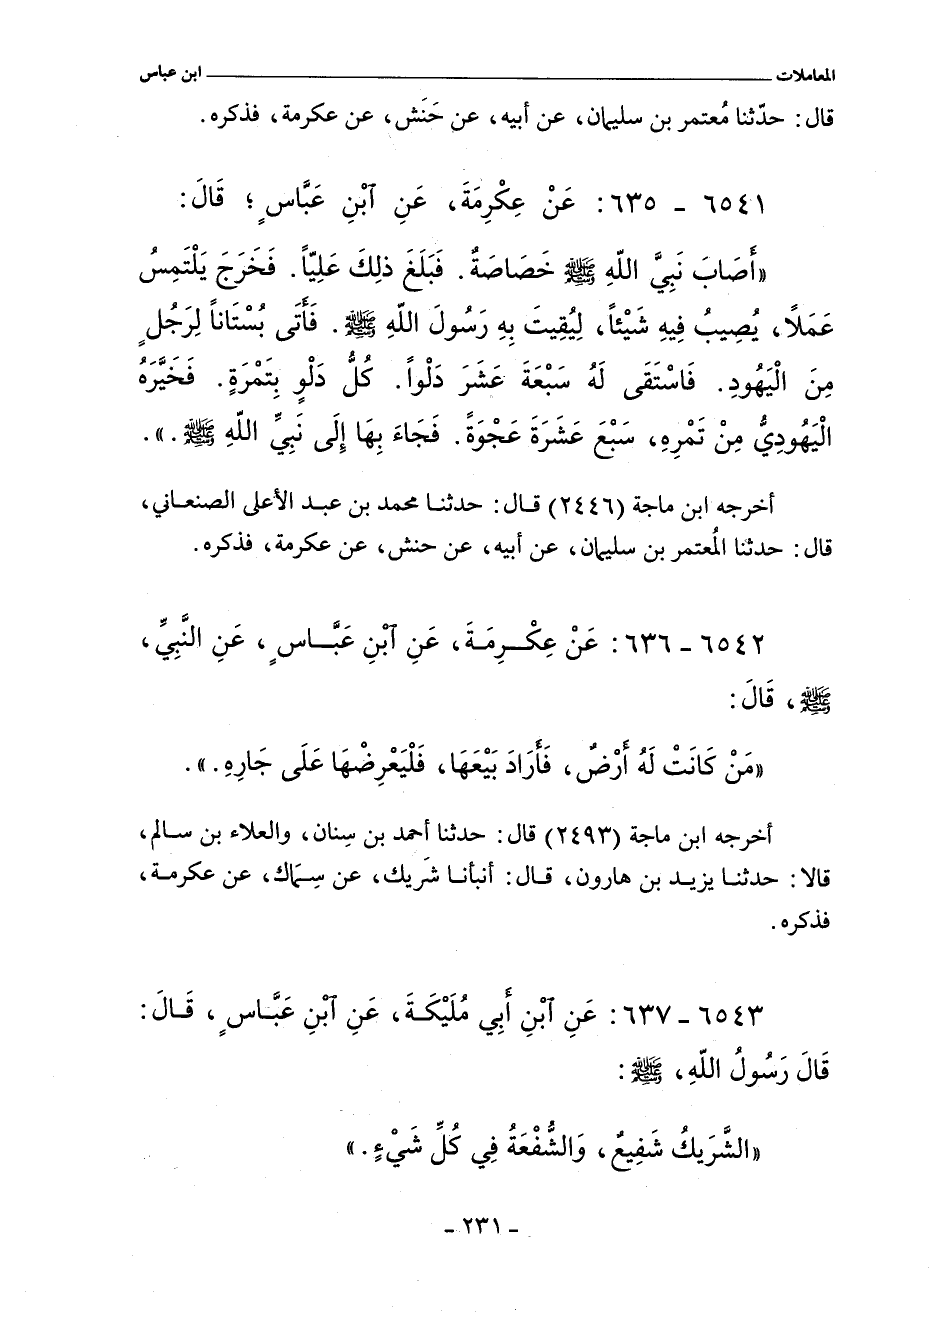 المعاملات ــــــــــــــــــــ ابن عباس
قال: حدّثنا مُعتمر بن سليمان، عن أبيه، عن حَنَش، عن عكرمة، فذكره.
٦٥٤١ - ٦٣٥: عَنْ عِكْرِمَةَ، عَنِ ٱبْنِ عَبَّاسٍ؛ قَالَ:
«أَصَابَ نَبِيَّ اللّهِ ﷺ خَصَاصَةٌ. فَبَلَغَ ذلِكَ عَلِيّاً. فَخَرَجَ يَلْتَمِسُ
عَمَلًا، يُصِيبُ فِيهِ شَيْئاً، لِيُقِيتَ بِهِ رَسُولَ اللّهِ ﷺ. فَأَتَى بُسْتَاناً لِرَجُلٍ
مِنَ الْيَهُودِ. فَاسْتَقَى لَهُ سَبْعَةَ عَشَرَ دَلْواً. كُلُّ دَلْوٍ بِتَمْرَةٍ. فَخَيَّرَهُ
الْيَهُودِيُّ مِنْ تَمْرِهِ، سَبْعَ عَشَرَةَ عَجْوَةً. فَجَاءَ بِهَا إِلَى نَبِيِّ اللّهِ ﷺ.».
أخرجه ابن ماجة (٢٤٤٦) قال: حدثنا محمد بن عبد الأعلى الصنعاني،
قال: حدثنا المُعتمر بن سليمان، عن أبيه، عن حنش، عن عكرمة، فذكره.
٦٥٤٢ - ٦٣٦: عَنْ عِكْرِمَةَ، عَنِ ٱبْنِ عَبَّاسٍ، عَنِ النَّبِيِّ،
ﷺ، قَالَ:
«مَنْ كَانَتْ لَهُ أَرْضٌ، فَأَرَادَ بَيْعَهَا، فَلْيَعْرِضْهَا عَلَى جَارِهِ.».
أخرجه ابن ماجة (٢٤٩٣) قال: حدثنا أحمد بن سِنان، والعلاء بن سالم،
قالا: حدثنا يزيد بن هارون، قال: أنبأنا شَريك، عن سِمَاك، عن عكرمة،
فذكره.
٦٥٤٣ - ٦٣٧: عَنِ ٱبْنِ أَبِي مُلَيْكَةَ، عَنِ ٱبْنِ عَبَّاسٍ، قَالَ:
قَالَ رَسُولُ اللّهِ، ﷺ:
«الشَّرِيكُ شَفِيعٌ، وَالشُّفْعَةُ فِي كُلِّ شَيْءٍ.»
- ٢٣١ -